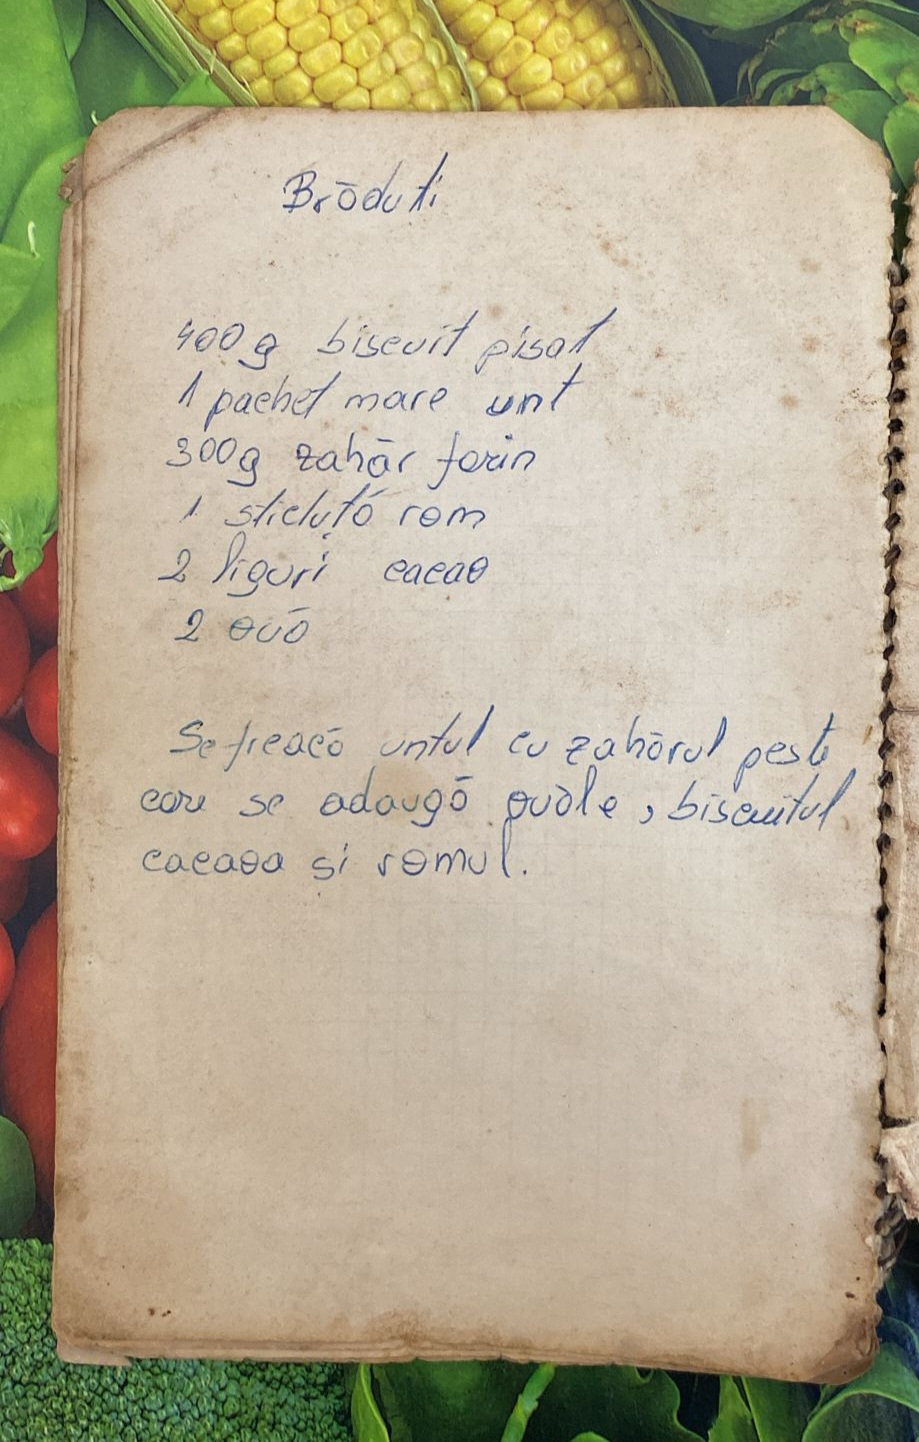 Brăduti
400g biscuit pisat
1 pachet mare unt
300g zahăr farin
1 sticluță rom
2 liguri cacao
2 ouă
Se freacă untul cu zahărul peste
care se adaugă ouăle, biscuitul
cacaoa și romul.